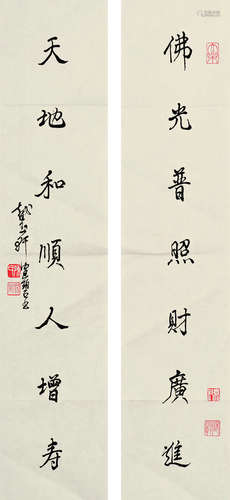 佛光普照財廣進
天地和順人增寿